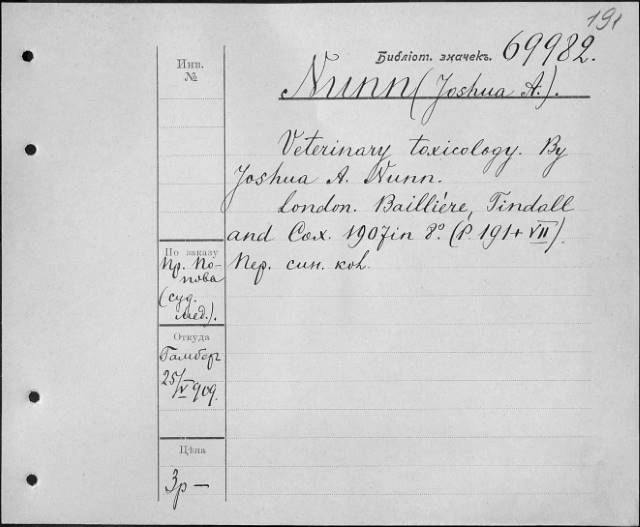 191
Библіот. значекъ. 69982.
Инв.
№
Nunn (Joshua A.).
Veterinary toxicology. By
Joshua A. Nunn.
London. Baillière, Tindall
and Cox. 1907 in 8º. (P. 191 + VII).
Пер. син. кол.
По заказу
Пр. По-
пова
(суд.
мед.).
Откуда
Гамберг
25/V 909.
Цѣна
3р —